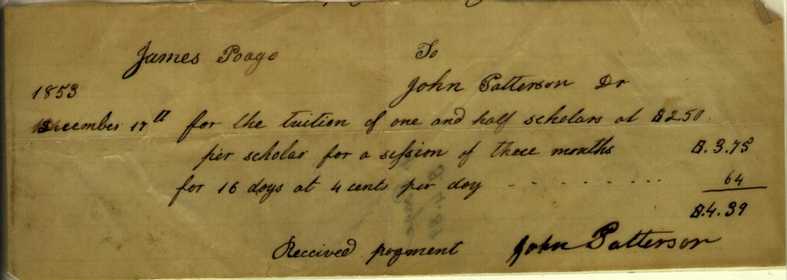 James Poage To
1853 John Patterson Dr
December 17th for the tuition of one and half scholars at $2.50
per scholar for a session of three months $.3.75
for 16 days at 4 cents per day - - - - - - - - - - 64
$.4.39
Received payment John Patterson